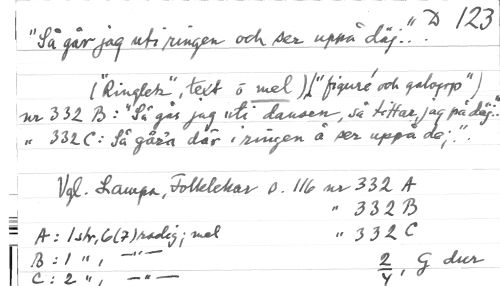 D 123
"Så går jag uti ringen och ser uppå däj..".
("Ringlek", text o mel) ("figuré och galopp")
nr 332 B: "Så går jag uti dansen, så tittar jag på däj.."
" 332 C: Så gåra där i ringen å ser uppå dej.".
Vgl. Lampa, Folklekar s. 116 nr 332 A
" 332 B
A: 1 str, 6(7)radig; mel " 332 C
B: 1 ", —"—
C: 2 ", —"— 2/4, G dur